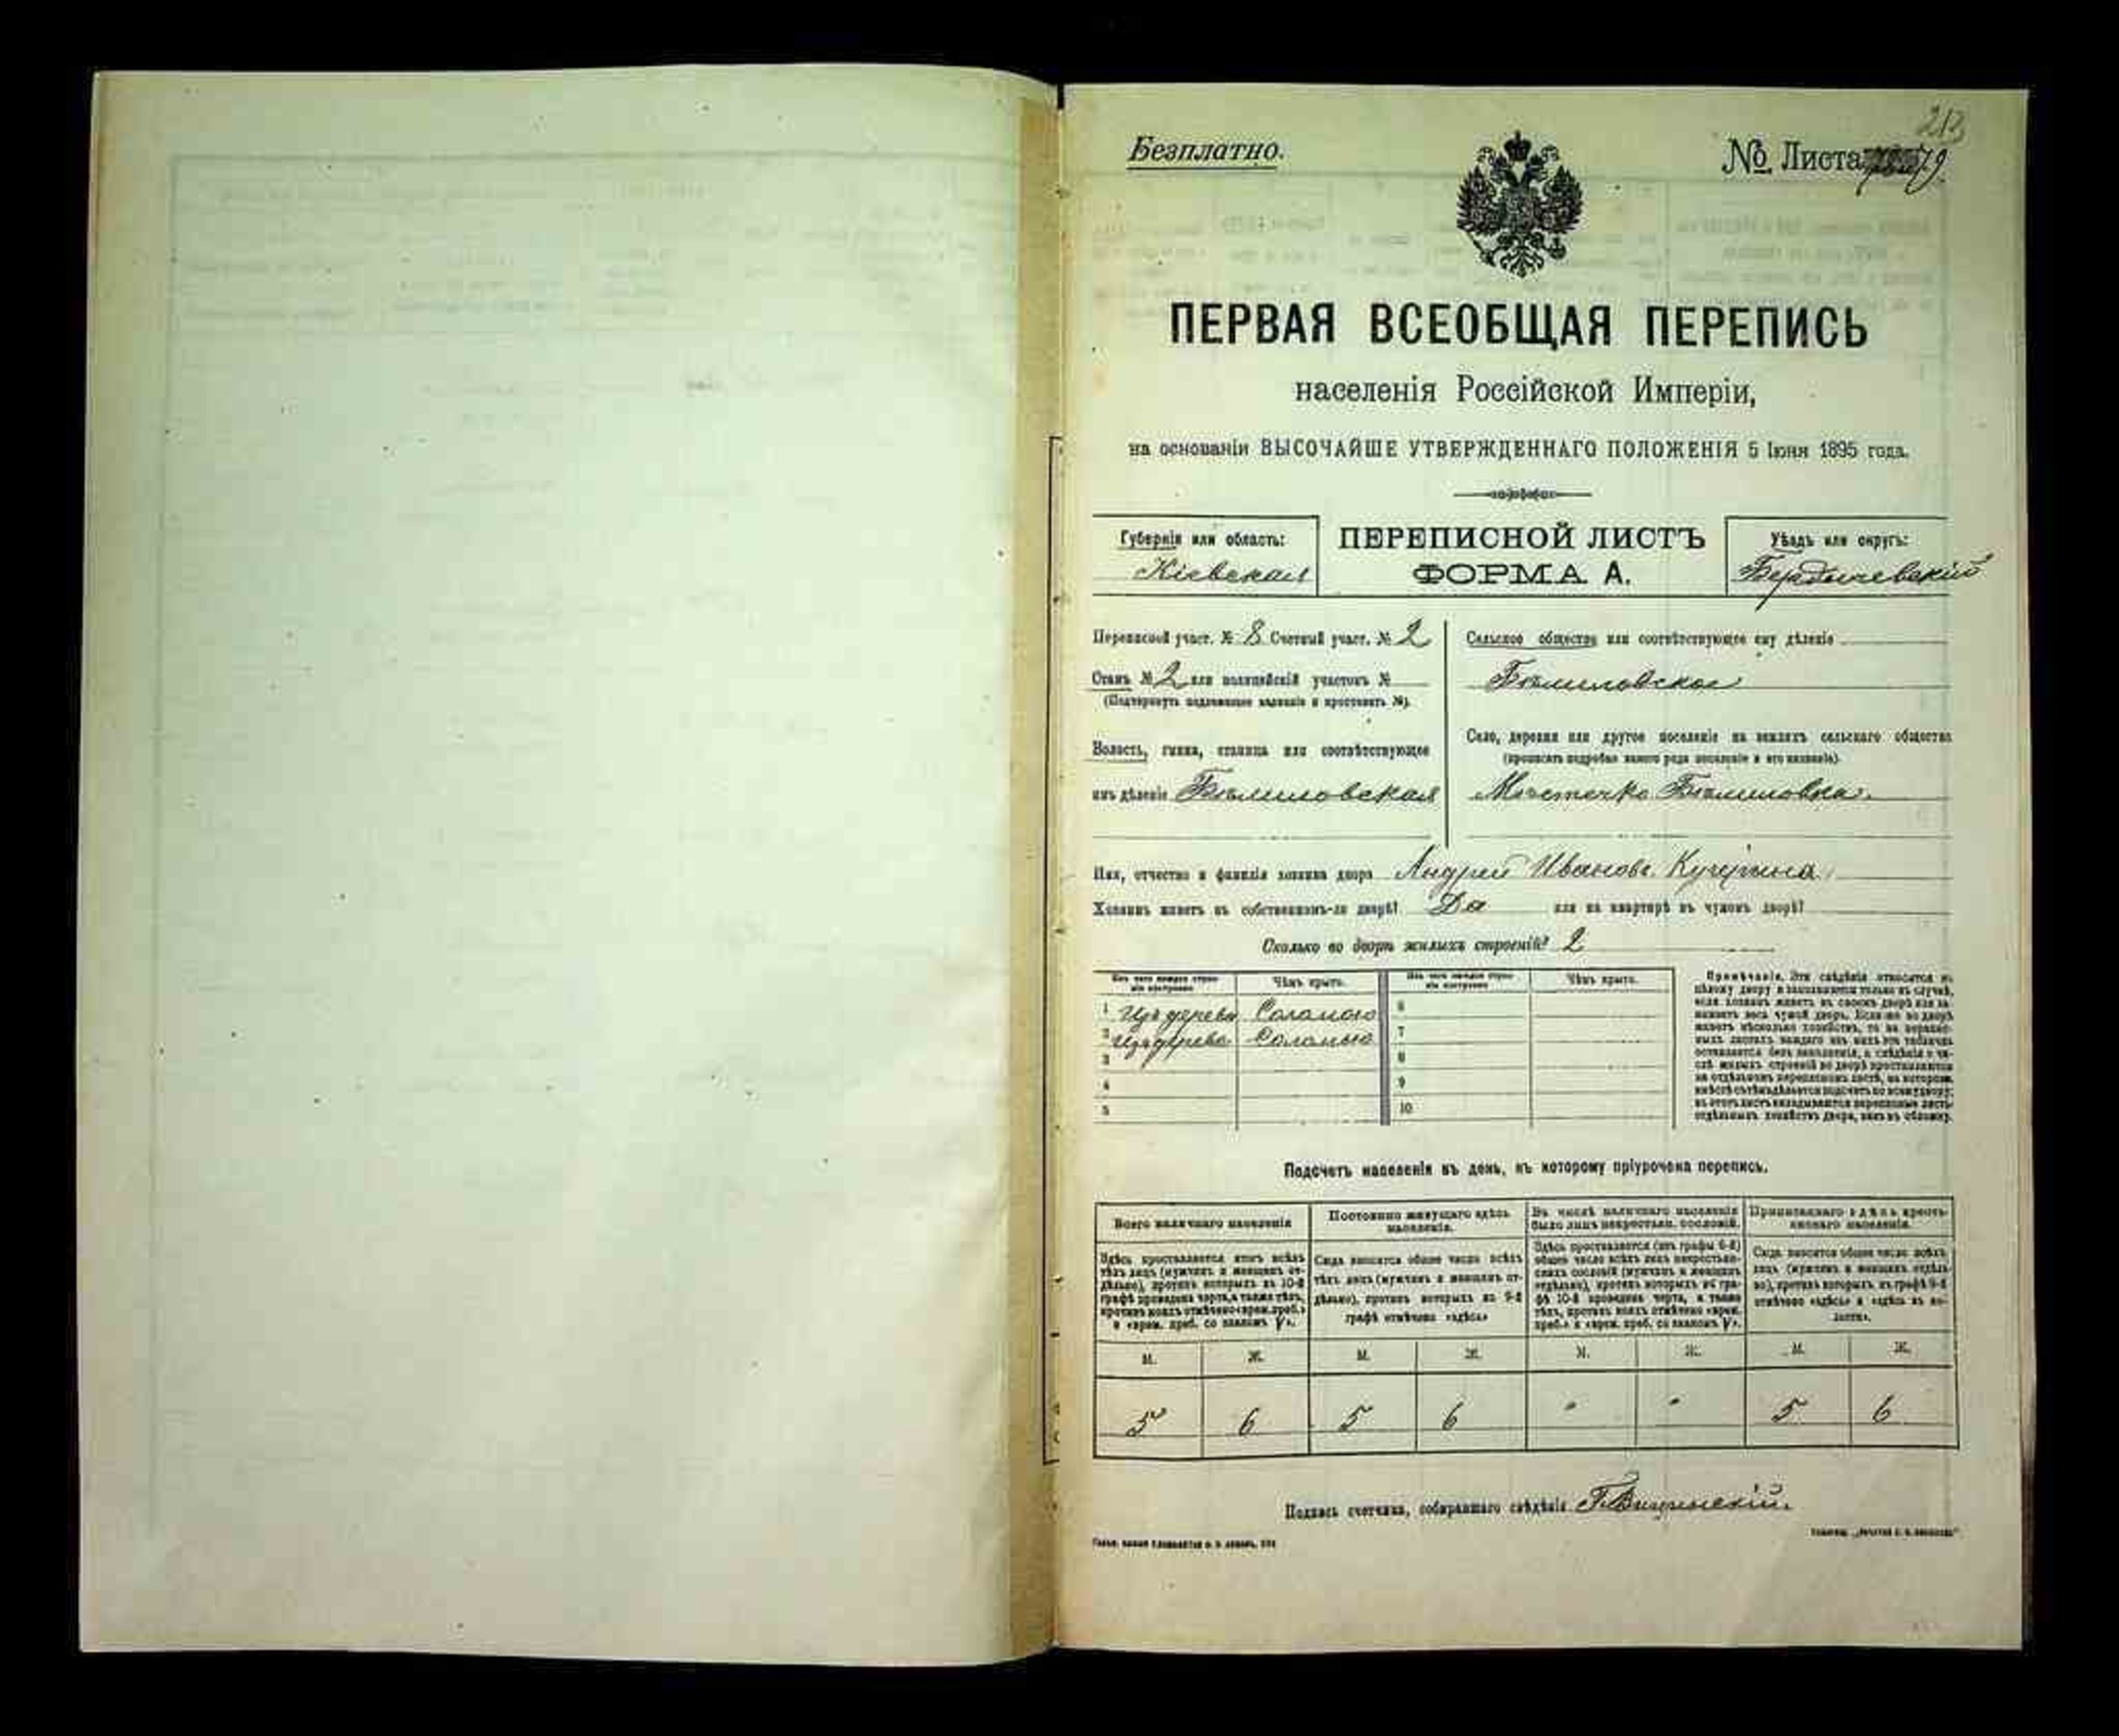 213
Безплатно.
№ Листа 79.
ПЕРВАЯ ВСЕОБЩАЯ ПЕРЕПИСЬ
населенія Россійской Имперіи,
на основаніи ВЫСОЧАЙШЕ УТВЕРЖДЕННАГО ПОЛОЖЕНІЯ 5 Іюня 1895 года.
Губернія или область:
Кіевская
ПЕРЕПИСНОЙ ЛИСТЪ
ФОРМА А.
Уѣздъ или округъ:
Бердичевскій
Переписной участ. № 8 Счетный участ. № 2
Станъ № 2 или полицейскій участокъ №
(Подчеркнуть подлежащее названіе и проставить №).
Волость, гмина, станица или соотвѣтствующее
имъ дѣленіе Бѣлиловская
Сельское общество или соотвѣтствующее ему дѣленіе
Бѣлиловское
Село, деревня или другое поселеніе на земляхъ сельскаго общества
(прописать подробно какого рода поселеніе и его названіе).
Мѣстечко Бѣлиловка.
Имя, отчество и фамилія хозяина двора Андрей Иванов.
Хозяинъ живетъ въ собственномъ-ли дворѣ? Да или на квартирѣ въ чужомъ дворѣ?
Сколько во дворѣ жилыхъ строеній? 2
Изъ чего каждое строеніе построено
Чѣмъ крыто.
Изъ чего каждое строеніе построено
Чѣмъ крыто.
1 Изъ дерева Соломою 6
2 Изъ дерева Соломою 7
3 8
4 9
5 10
Примѣчаніе. Эти свѣдѣнія относятся къ
цѣлому двору и заполняются только въ случаѣ,
если хозяинъ живетъ въ своемъ дворѣ или за-
нимаетъ весь чужой дворъ. Если же во дворѣ
живетъ нѣсколько хозяйствъ, то на перепис-
ныхъ листахъ каждаго изъ нихъ эта табличка
оставляется безъ заполненія, а свѣдѣнія о чи-
слѣ жилыхъ строеній во дворѣ проставляются
на отдѣльномъ переписномъ листѣ, на которомъ
вмѣстѣ съ тѣмъ дѣлается подсчетъ по всему двору;
въ этотъ листъ вкладываются переписные листы
отдѣльныхъ хозяйствъ двора, какъ въ обложку.
Подсчетъ населенія въ день, къ которому пріурочена перепись.
Всего наличнаго населенія
Постоянно живущаго здѣсь
населенія.
Въ числѣ наличнаго населенія
было лицъ некрестьян. сословій.
Приписаннаго здѣсь кресть-
янскаго населенія.
Здѣсь проставляется итогъ всѣхъ
тѣхъ лицъ (мужчинъ и женщинъ от-
дѣльно), противъ которыхъ въ 10-й
графѣ проведена черта, а также тѣхъ,
противъ коихъ отмѣчено «врем. преб.»
и «врем. преб. со знакомъ V».
Сюда вносится общее число всѣхъ
тѣхъ лицъ (мужчинъ и женщинъ от-
дѣльно), противъ которыхъ въ 9-й
графѣ отмѣчено «здѣсь»
Здѣсь проставляется (изъ графы 6-й)
общее число всѣхъ лицъ некрестьян-
скихъ сословій (мужчинъ и женщинъ
отдѣльно), противъ которыхъ въ гра-
фѣ 10-й проведена черта, а также
тѣхъ, противъ коихъ отмѣчено «врем.
преб.» и «врем. преб. со знакомъ V».
Сюда вносится общее число всѣхъ
лицъ (мужчинъ и женщинъ отдѣль-
но), противъ которыхъ въ графѣ 8-й
отмѣчено «здѣсь» и «здѣсь въ во-
лости».
М. Ж. М. Ж. М. Ж. М. Ж.
5 6 5 6 " " 5 6
Подпись счетчика, собиравшаго свѣдѣнія